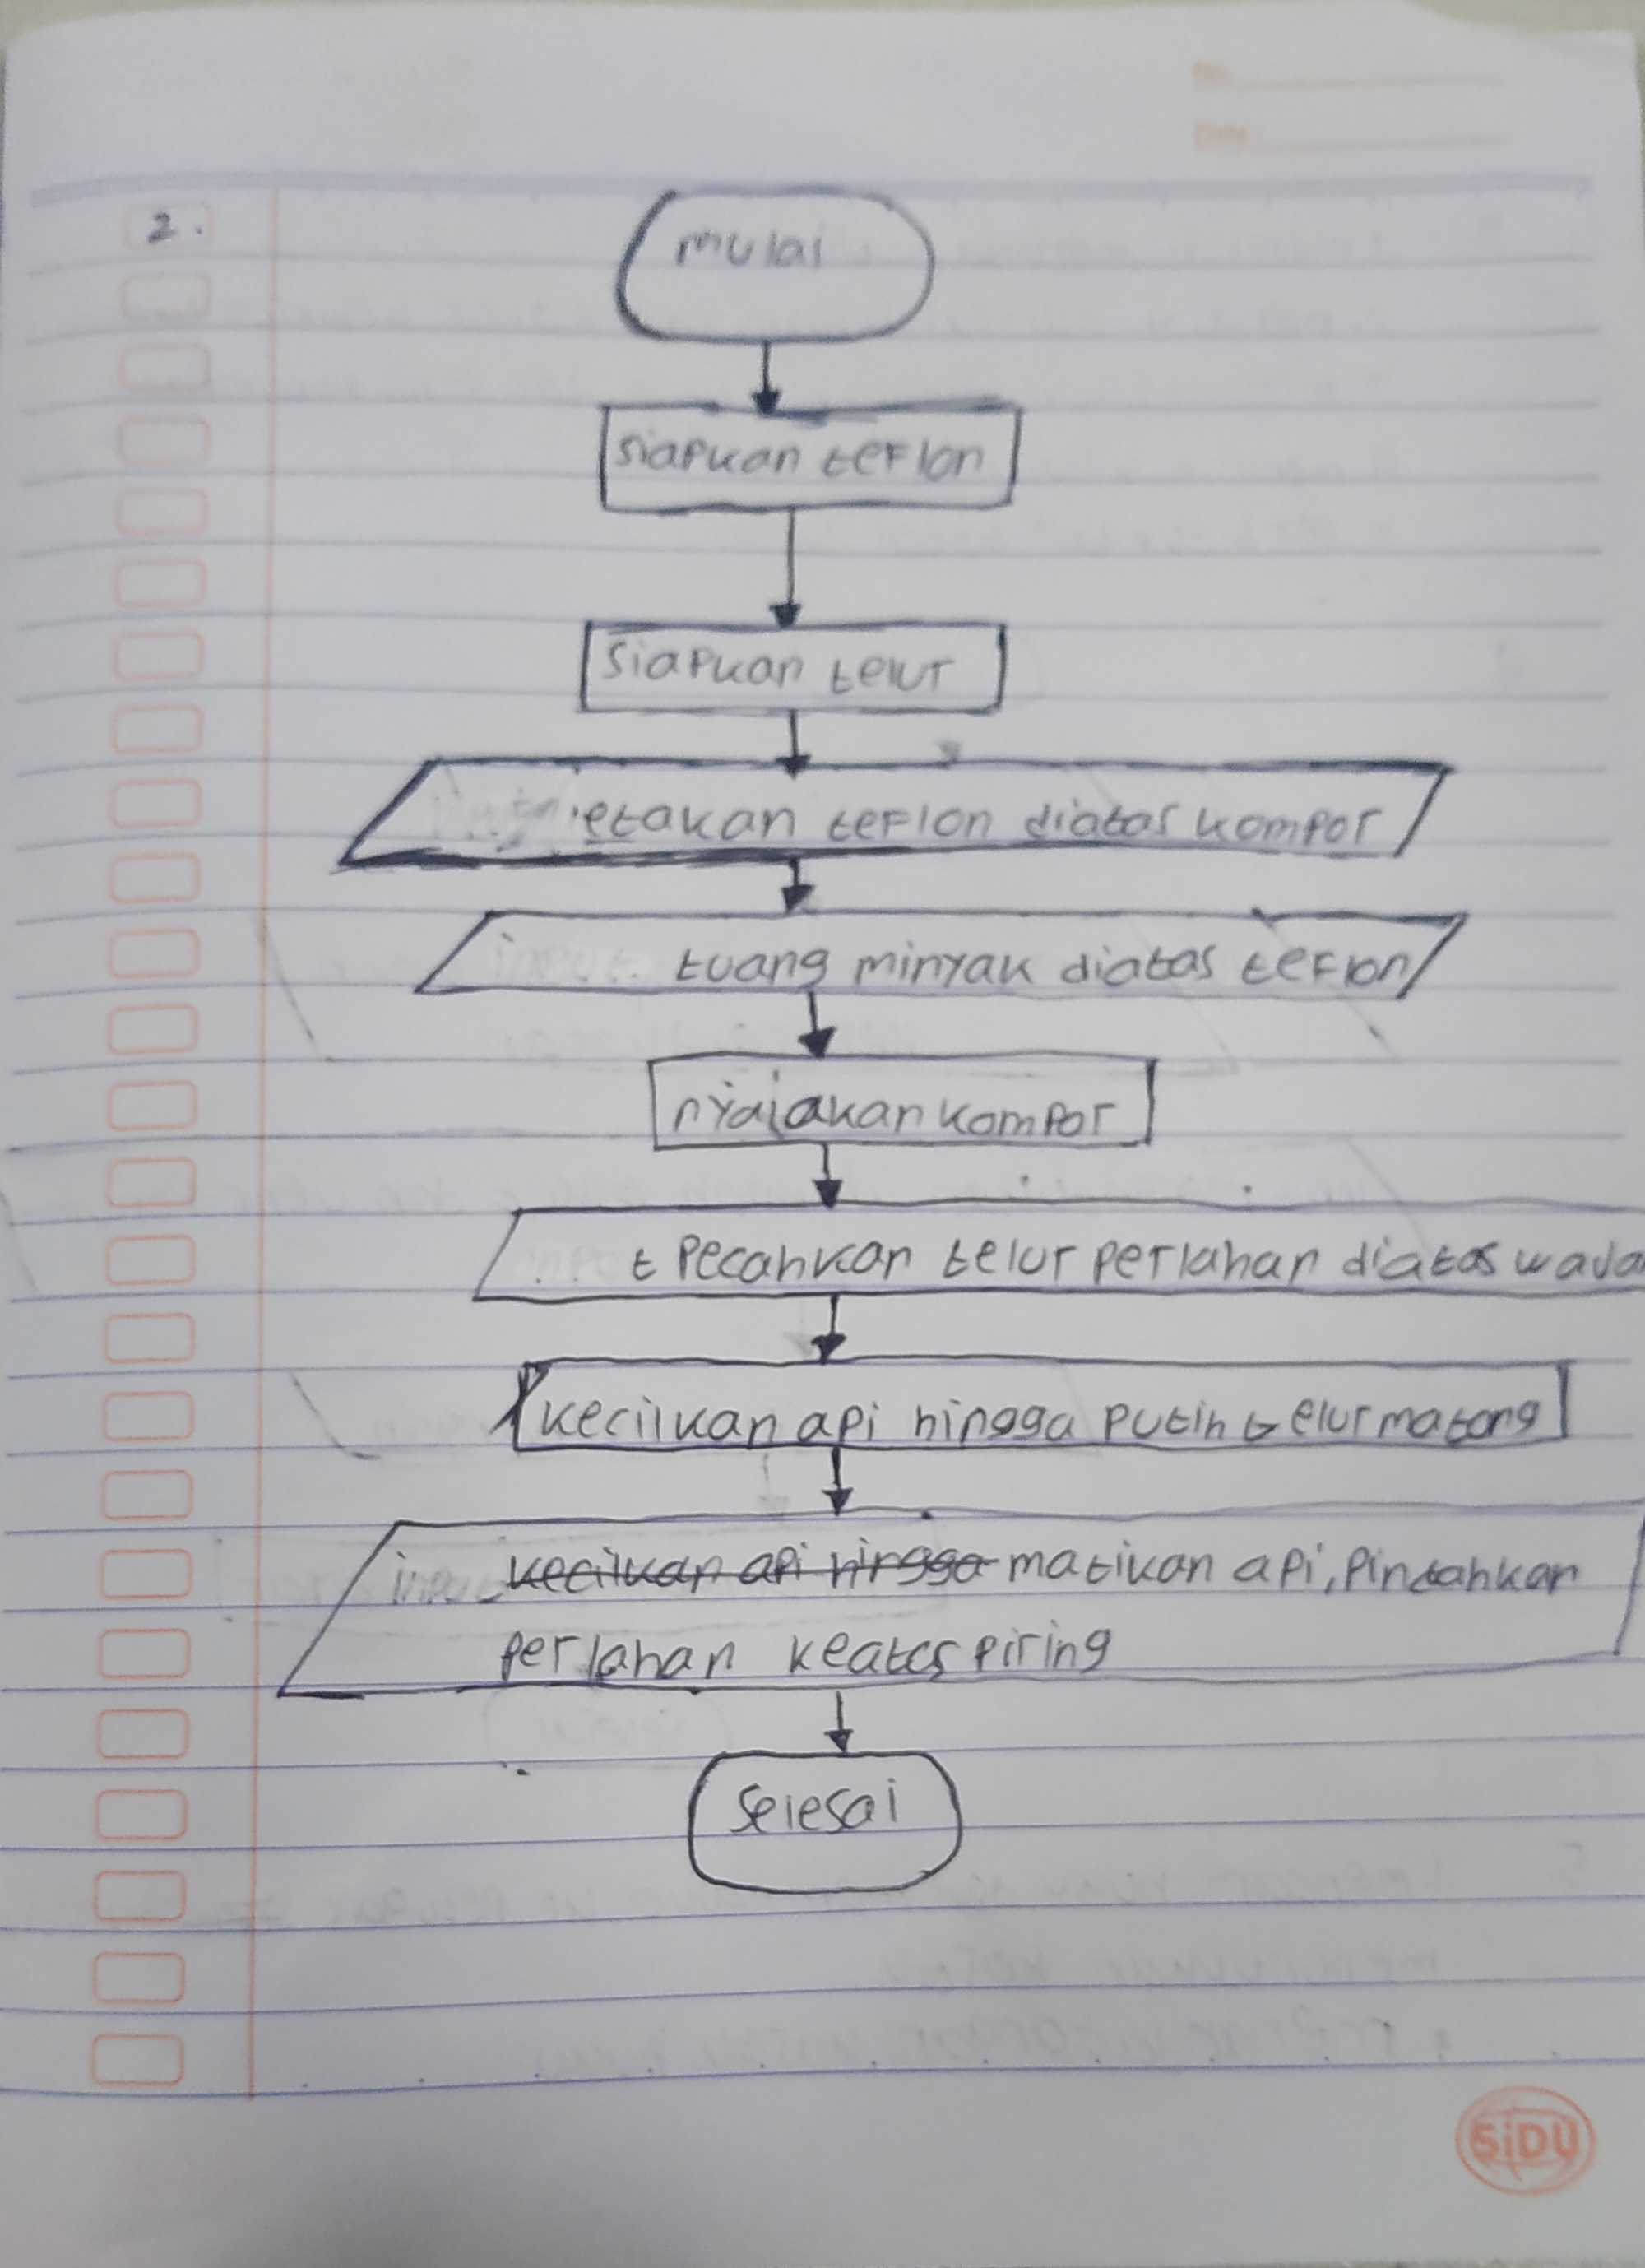 No
Date
2.
mulai
siapkan teflon
siapkan telur
letakan teflon diatas kompor
input tuang minyak diatas teflon
nyalakan kompor
t pecahkan telur perlahan diatas wada
kecilkan api hingga putih telur matang
input kecilkan api hingga matikan api, pindahkan
perlahan keatas piring
selesai
SiDU